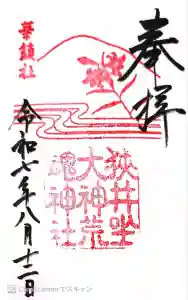 奉拝
華鎮社
狭井坐
大神荒
魂神社
令和七年八月十二日
CamScannerでスキャン